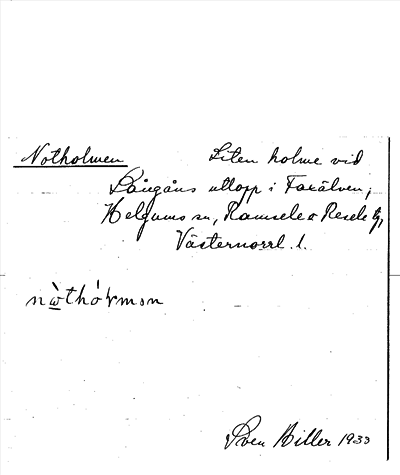 Notholmen Liten holme vid
Långåns utlopp i Faxälven,
Helgums sn, Ramsele o Resele tg,
Västernorrl. l.
nὼthó̵mən
Sven Hiller 1933